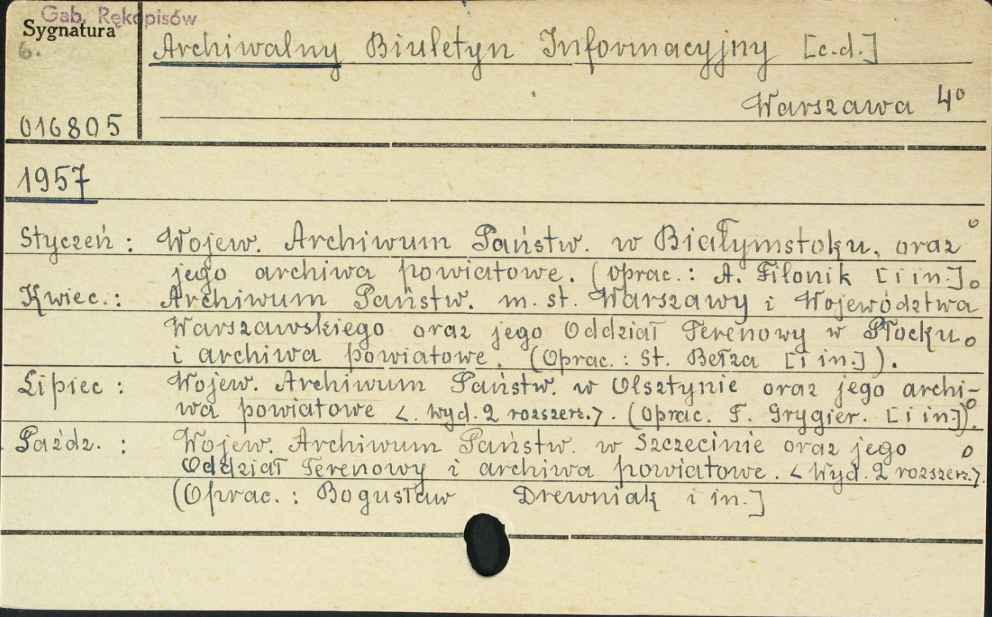 Gab. Rękopisów
Sygnatura
6.
Archiwalny Biuletyn Informacyjny [c.d.]
Warszawa 4°
016805
1957
Styczeń : Wojew. Archiwum Państw. w Białymstoku, oraz
jego archiwa powiatowe. (Oprac.: A. Filonik [i in.]
Kwiec.: Archiwum Państw. m. st. Warszawy i Województwa
Warszawskiego oraz jego Oddział Terenowy w Płocku
i archiwa powiatowe. (Oprac.: St. Bełza [i in.]).
Lipiec : Wojew. Archiwum Państw. w Olsztynie oraz jego archi-
wa powiatowe <. Wyd. 2 rozszerz.>. (Oprac. T. Grygier. [i in.]).
Paźdz. : Wojew. Archiwum Państw. w Szczecinie oraz jego
Oddział Terenowy i archiwa powiatowe. < Wyd. 2 rozszerz.>.
(Oprac. : Bogusław Drewniak i in.]